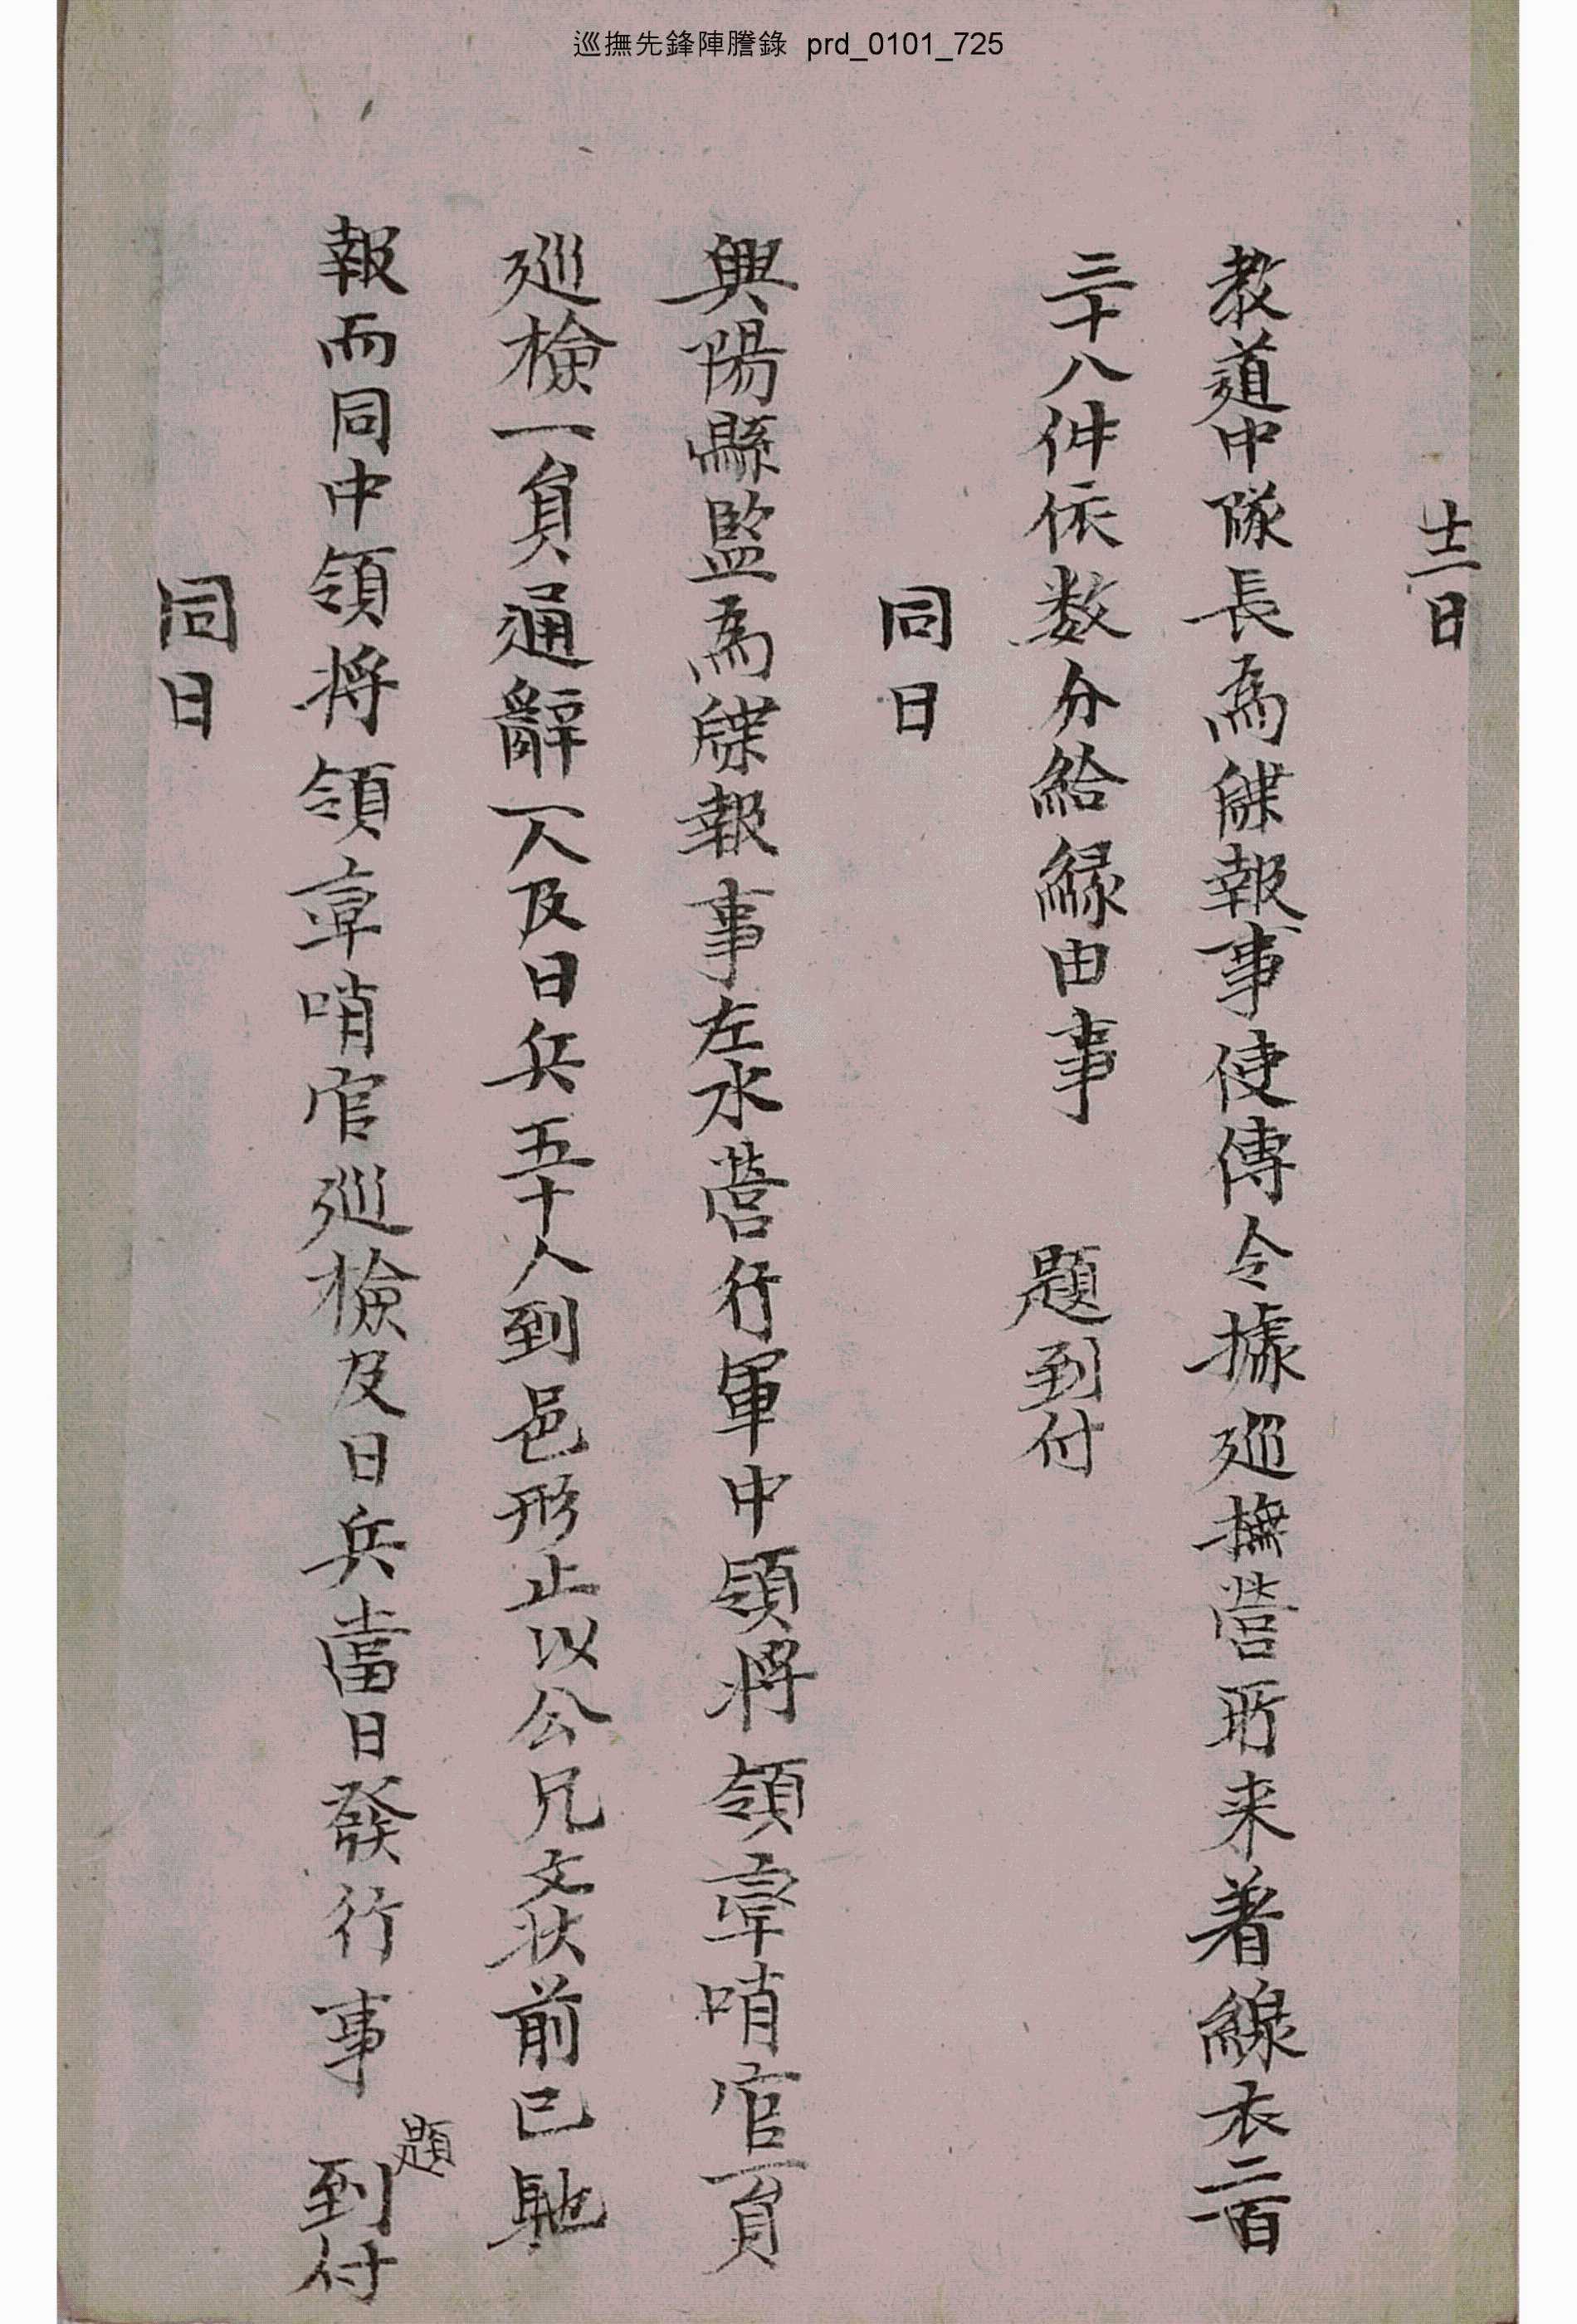 巡撫先鋒陣謄錄 prd_0101_725
十二日
敎道中隊長爲牒報事使傳令據巡撫營所来着線衣二百
三十八件依数分給緣由事 題到付
同日
興陽縣監爲牒報事左水營行軍中領將領率哨官一員
巡檢一員通辭一人及日兵五十人到邑形止以公兄文狀前已馳
報而同中領將領率哨官巡檢及日兵當日發行事 題到付
同日